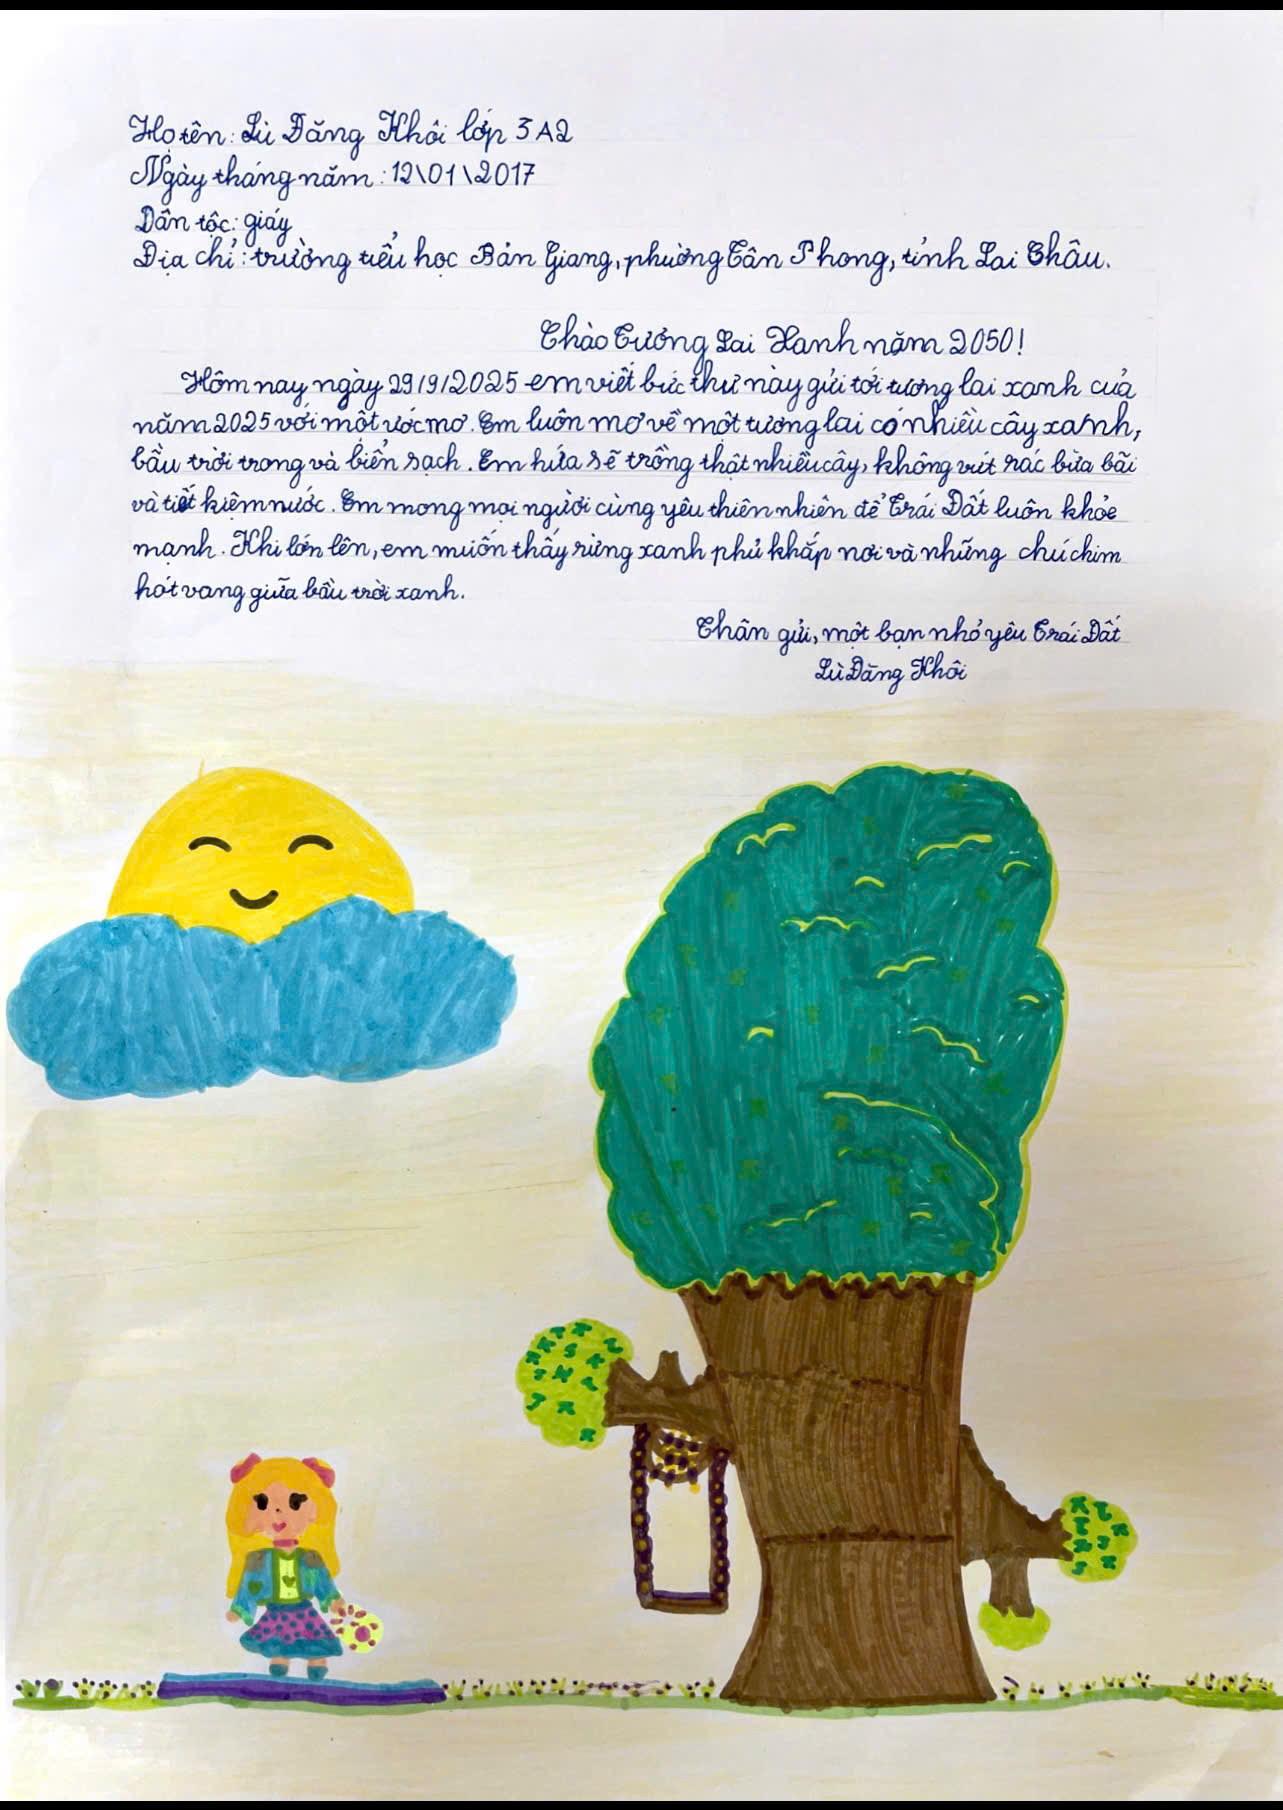 Họ tên: Lù Đăng Khôi lớp 3A2
Ngày tháng năm: 12\01\2017
Dân tộc: giáy
Địa chỉ: trường tiểu học Bản Giang, phường Tân Phong, tỉnh Lai Châu.
Chào Tương Lai Xanh năm 2050!
Hôm nay ngày 29/9/2025 em viết bức thư này gửi tới tương lai xanh của
năm 2025 với một ước mơ. Em luôn mơ về một tương lai có nhiều cây xanh,
bầu trời trong và biển sạch. Em hứa sẽ trồng thật nhiều cây, không vứt rác bừa bãi
và tiết kiệm nước. Em mong mọi người cùng yêu thiên nhiên để Trái Đất luôn khỏe
mạnh. Khi lớn lên, em muốn thấy rừng xanh phủ khắp nơi và những chú chim
hót vang giữa bầu trời xanh.
Thân gửi, một bạn nhỏ yêu Trái Đất
Lù Đăng Khôi